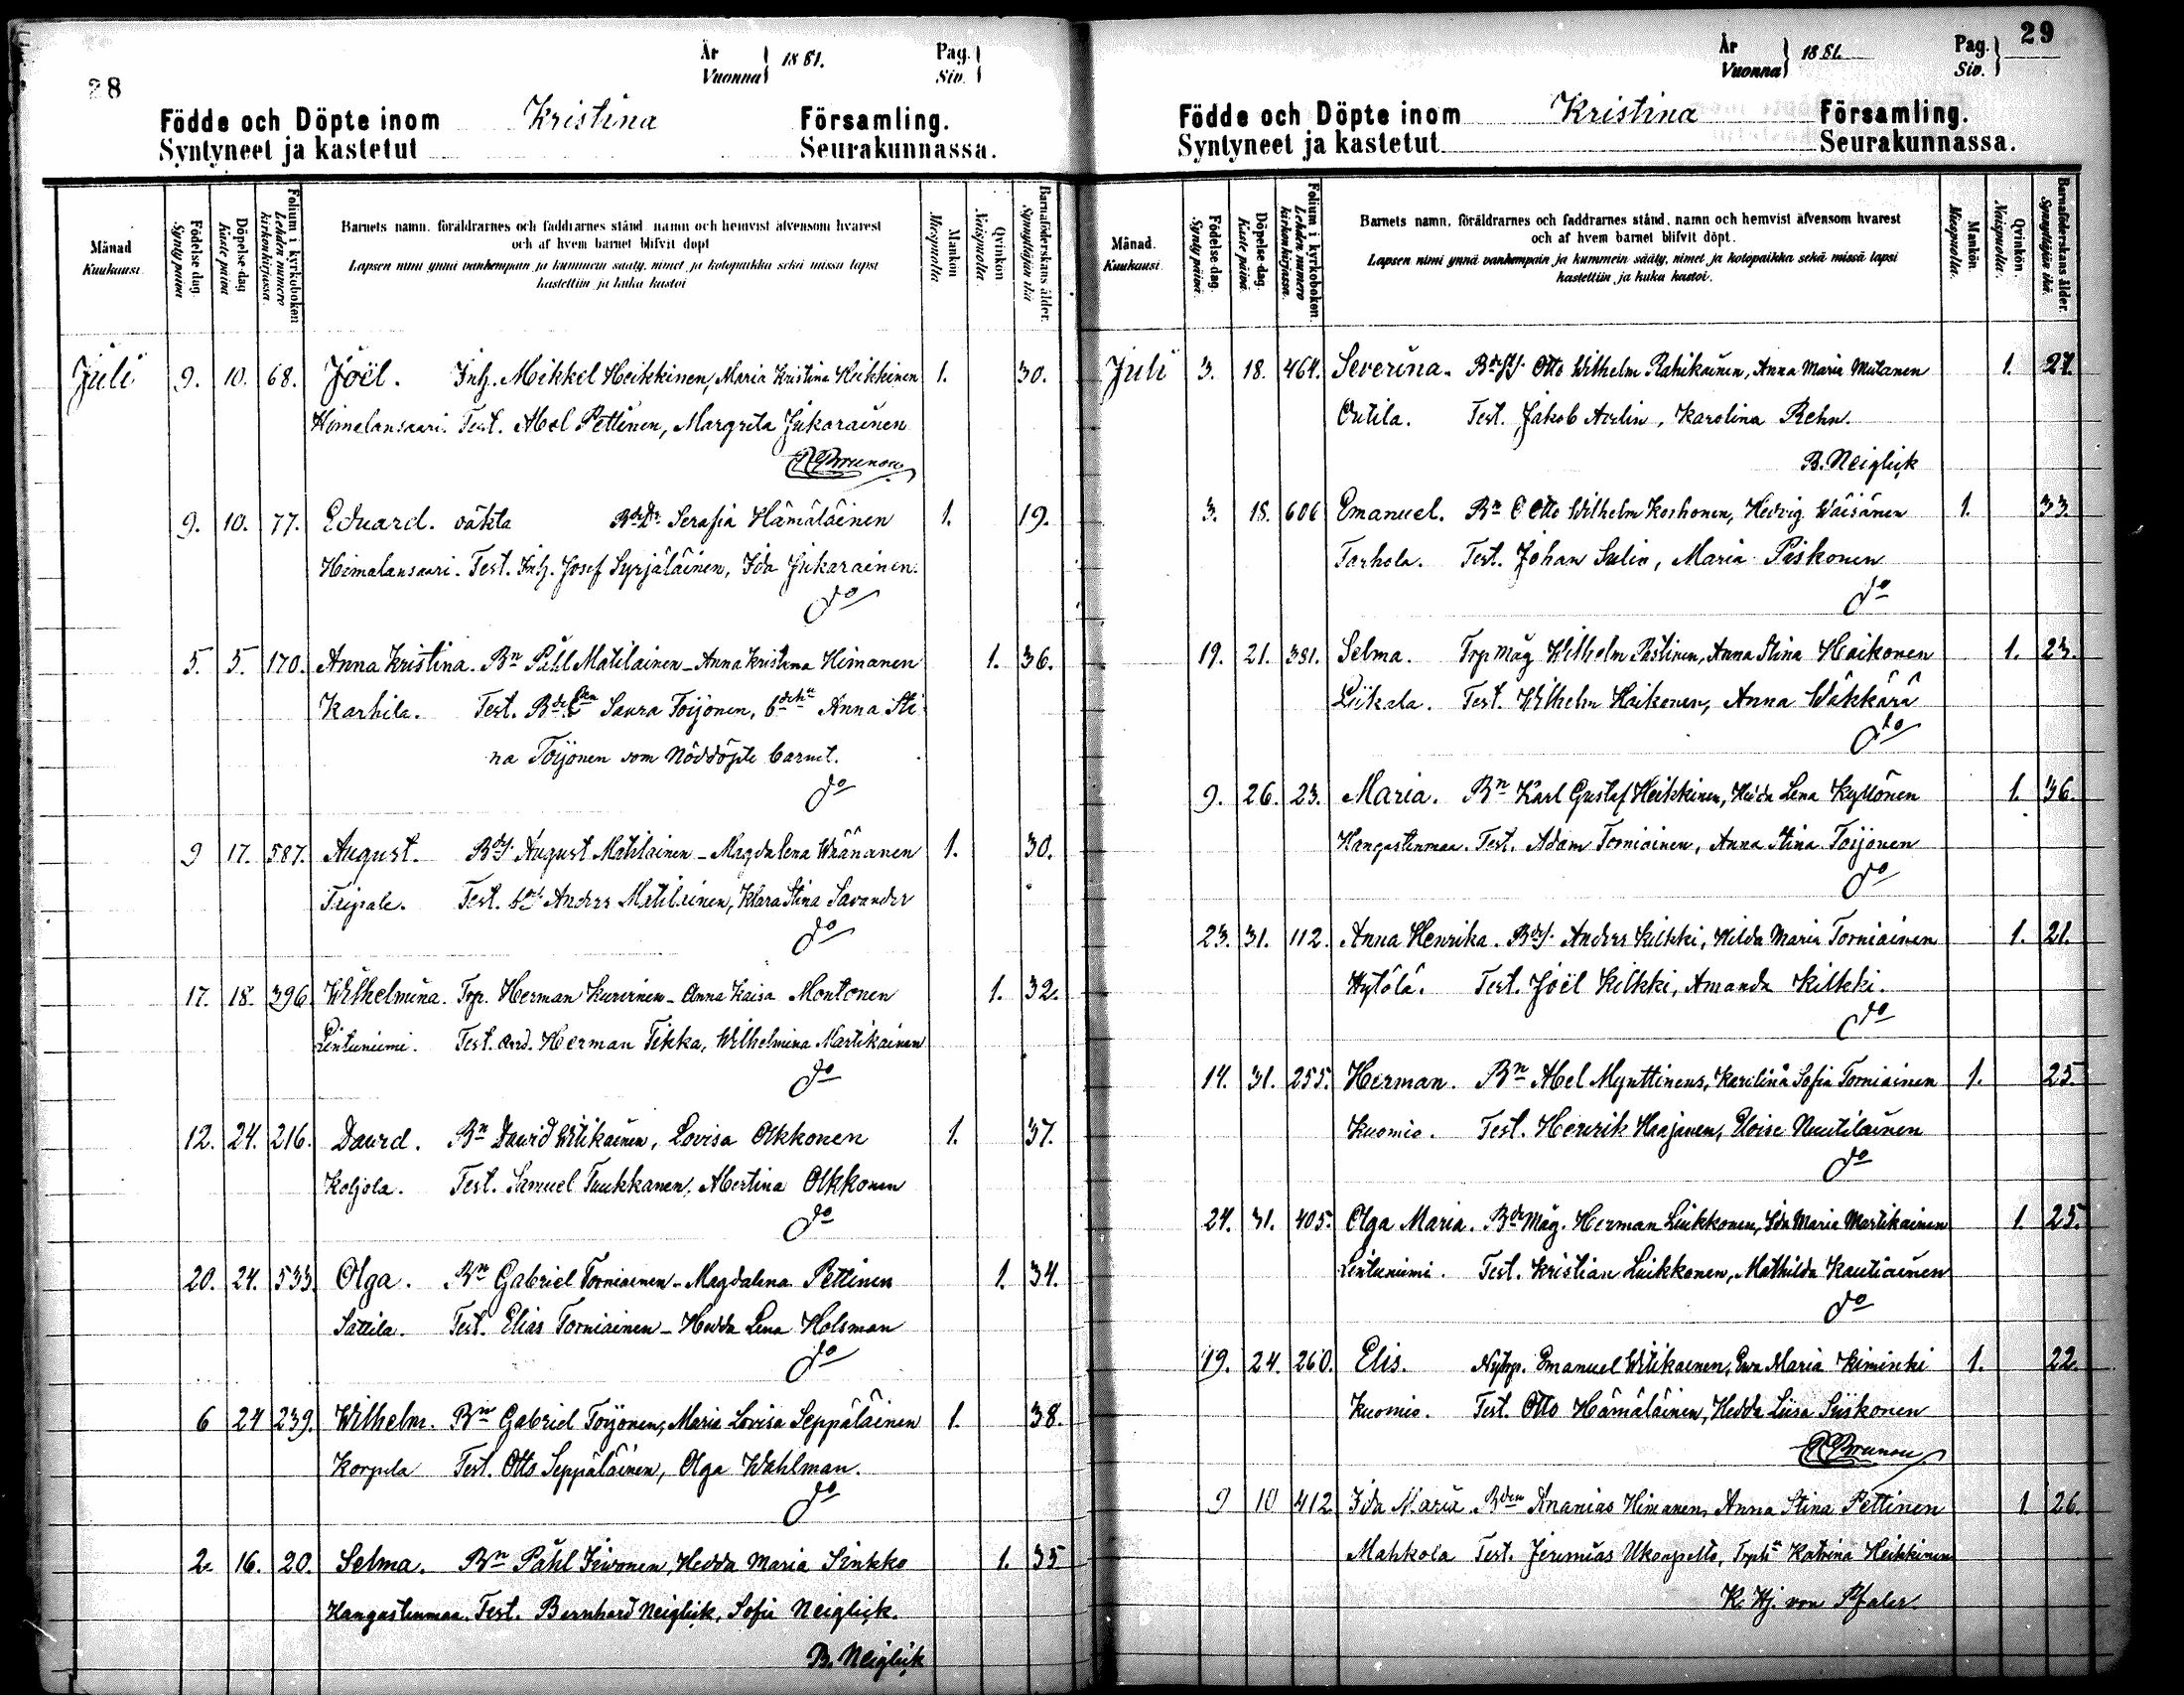 28
År
Vuonna
1881.
Pag.
Siv.
Födde och Döpte inom Kristina Församling.
Syntyneet ja kastetut Seurakunnassa.
Månad
Kuukausi.
Födelse dag.
Synty päivä
Döpelse-dag
Kaste päivä
Folium i kyrkoboken
Lehden numero
kirkonkirjassa.
Barnets namn, föräldrarnes och faddrarnes stånd, namn och hemvist äfvensom hvarest
och af hvem barnet blifvit döpt
Lapsen nimi ynnä vanhempain ja kummein sääty, nimet ja kotopaikka sekä missä lapsi
kastettiin ja kuka kastoi
Mankön
Miespuolia
Qvinkön
Naispuolia.
Barnaföderskans ålder.
Synnyttäjän ikä
Juli 9. 10. 68. Joël. Inh. Mikkel Heikkinen, Maria Kristina Heikkinen 1. 30.
Himalansaari. Test. Abel Pettinen, Margreta Jukarainen
9. 10. 77. Eduard. oäkta Serafia Hämäläinen 1. 19.
Himalansaari. Test. Inh. Josef Syrjäläinen, Ida Jukarainen.
do
5. 5. 170. Anna Kristina. Bn Påhl Matilainen - Anna Kristina Himanen 1. 36.
Karhila. Test. Saura Toijonen, Anna Sti
na Toijonen som Nöddöpte barnet.
do
9 17. 587. August. August Matilainen - Magdalena Wäänänen 1. 30.
Test. Anders Matilainen, Klara Stina Savander
do
17. 18. 396. Wilhelmina. Trp. Herman Kurvinen - Anna Kaisa Montonen 1. 32.
Lintuniemi. Test. Herman Tikka, Wilhelmina Martikainen
do
12. 24. 216. David. Bn David Witikainen, Lovisa Olkkonen 1. 37.
Koljola. Test. Samuel Tuukkanen, Albertina Olkkonen
do
20. 24. 533. Olga. Bn Gabriel Torniainen - Magdalena Pettinen 1. 34.
Sattila. Test. Elias Torniainen - Hedda Lena Holsman
do
6 24 239. Wilhelm. Bn Gabriel Toijonen, Maria Lovisa Seppäläinen 1. 38.
Korpela Test. Otto Seppäläinen, Olga Wahlman.
do
2. 16. 20. Selma. Bn Påhl Hedda Maria Sinkko 1. 35
Kangastenmaa. Test. Bernhard Neiglick, Sofia Neiglick.
B. Neiglick
29
År
Vuonna
1881.
Pag.
Siv.
Födde och Döpte inom Kristina Församling.
Syntyneet ja kastetut Seurakunnassa.
Månad.
Kuukausi.
Födelse-dag.
Synty päivä.
Döpelse-dag.
Kaste päivä.
Folium i kyrkoboken.
Lehden numero
kirkonkirjassa.
Barnets namn, föräldrarnes och faddrarnes stånd, namn och hemvist äfvensom hvarest
och af hvem barnet blifvit döpt.
Lapsen nimi ynnä vanhempain ja kummein sääty, nimet ja kotopaikka sekä missä lapsi
kastettiin ja kuka kastoi.
Mankön.
Miespuolia.
Qvinkön.
Naispuolia.
Barnaföderskans ålder.
Synnyttäjän ikä.
Juli 3. 18. 464. Severina. Otto Wilhelm Rahikainen, Anna Maria Mutanen 1. 27.
Outila. Test. Jakob Karolina Rehn.
B. Neiglick
3. 18. 606 Emanuel. Bn Otto Wilhelm Korhonen, Hedvig Wäisänen 1. 33.
Tarhola. Test. Johan Salin, Maria Piskonen
do
19. 21. 381. Selma. Trpmåg Wilhelm Pästinen, Anna Stina Haikonen 1. 23.
Liikala. Test. Wilhelm Haikonen, Anna Wäkkärä
do
9. 26. 23. Maria. Bn Karl Gustaf Heikkinen, Hedda Lena Kyllönen 1. 36.
Kangastenmaa. Test. Adam Torniainen, Anna Stina Toijonen
do
23. 31. 112. Anna Henrika. Anders Kilkki, Hilda Maria Torniainen 1. 21.
Hytölä. Test. Joël Kilkki, Amanda Kilkki.
do
14. 31. 255. Herman. Bn Abel Mynttinen, Karolina Sofia Torniainen 1. 25.
Kuomio. Test. Henrik Haajanen, Eloise Nuutilainen
do
24. 31. 405. Olga Maria. Herman Liukkonen, Ida Maria Martikainen 1. 25.
Lintuniemi. Test. Kristian Liukkonen, Mathilda Kautiainen
do
19. 24. 260. Elis. Nytrp. Emanuel Witikainen, Eva Maria Kiminki 1. 22.
Kuomio. Test. Otto Hämäläinen, Hedda Liisa Siiskonen
9 10 412 Ida Maria Ananias Himanen, Anna Stina Pettinen 1. 26.
Mahkola Test. Jeremias Katrina Heikkinen
K. Hj. von Pfaler